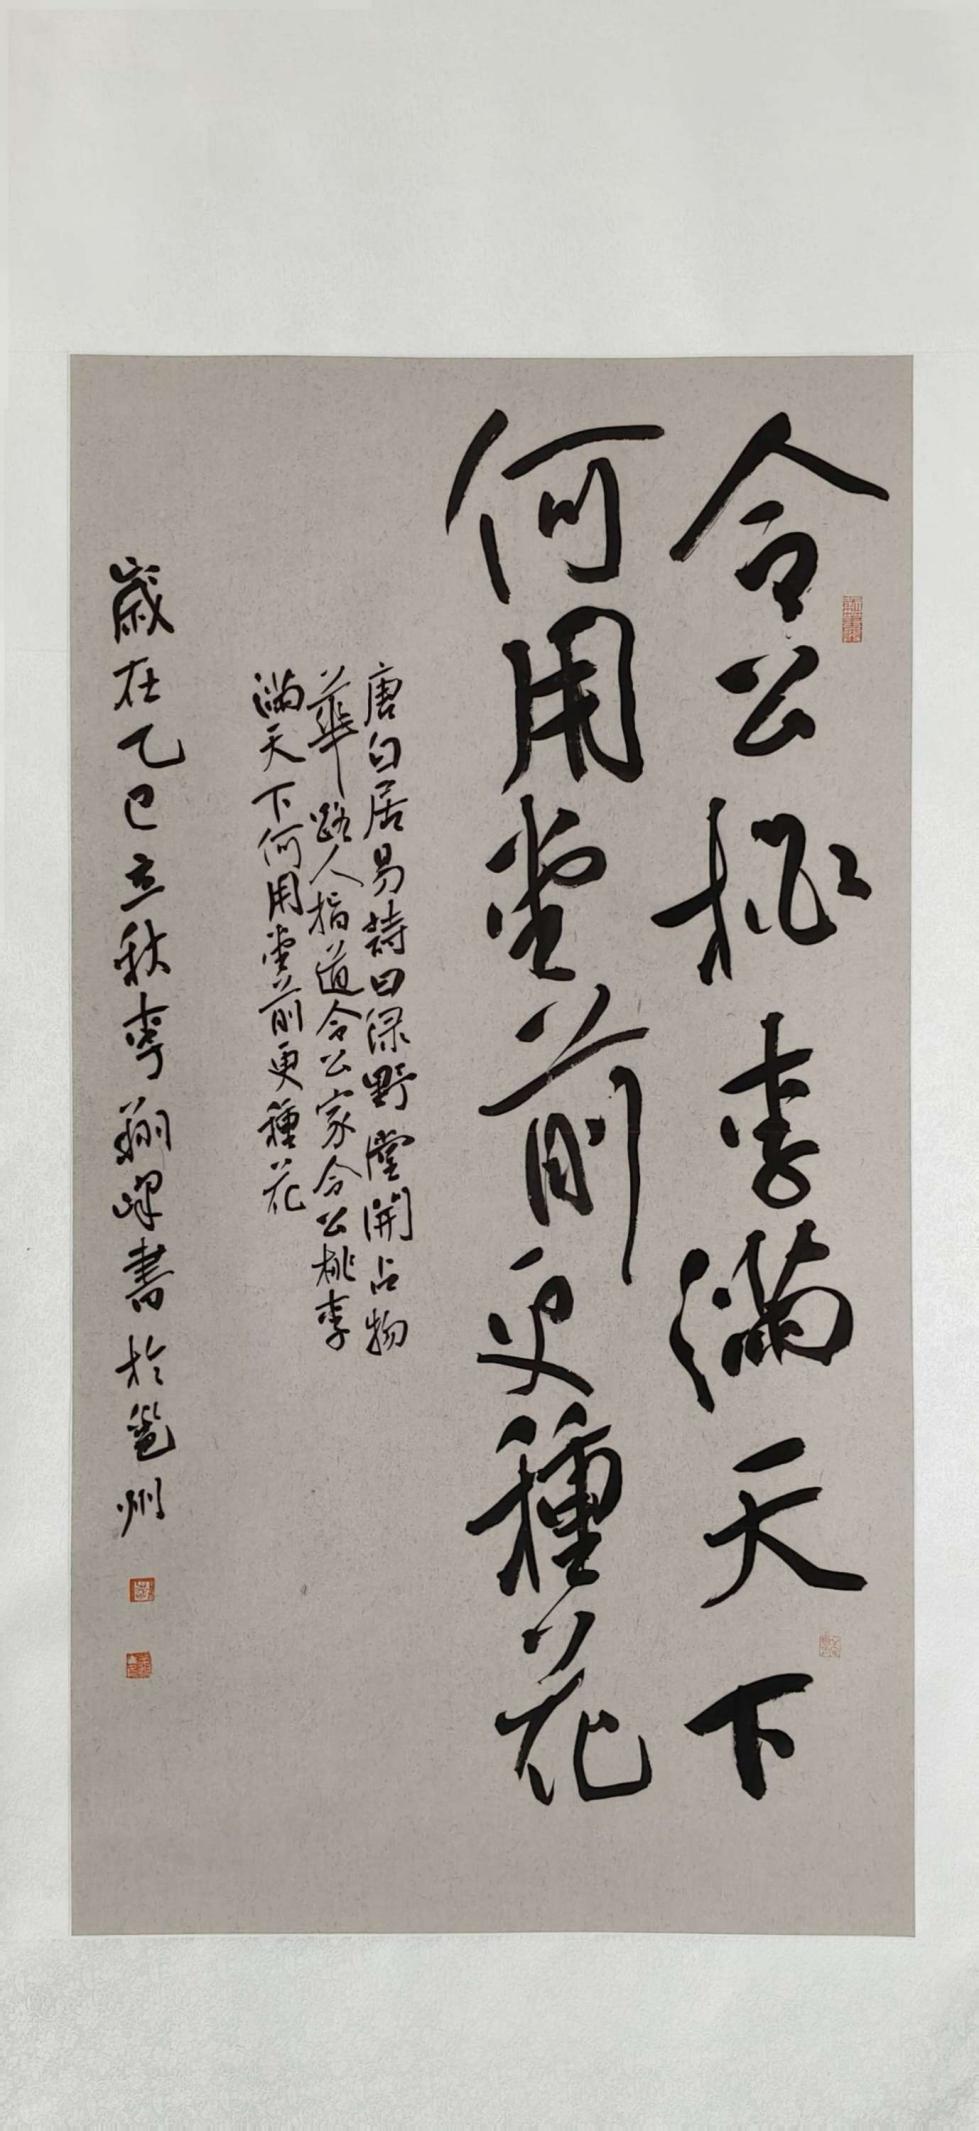 令公桃李满天下
何用堂前更種花
唐白居易詩曰绿野堂開占物
華路人指道令公家令公桃李
满天下何用堂前更種花
歲在乙巳立秋李翔峰書於邕州